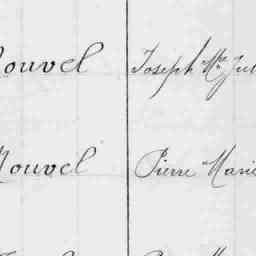 Nouvel Joseph Me Jul
Nouvel Pierre Marie